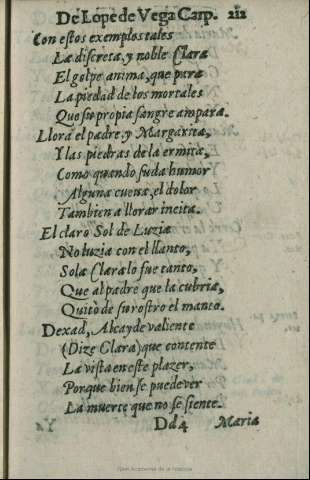 De Lope de Vega Carp. 212
Con estos exemplos tales
La discreta, y noble Clara
El golpe anima, que para
La piedad de los mortales
Que su propia sangre ampara.
Llora el padre, y Margarita,
Y las piedras de la ermita,
Como quando suda humor
Alguna cueua, el dolor
Tambien a llorar incita.
El claro Sol de Luzia
No luzia con el llanto,
Sola Clara lo fue tanto,
Que al padre que la cubria,
Quitò de su rostro el manto.
Dexad, Alcayde valiente
(Dize Clara) que contente
La vista en este plazer,
Porque bien se puede ver
La muerte que no se siente.
Dd4 Maria
Real Academia de la Historia